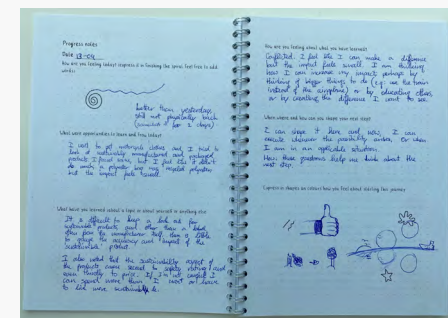 Progress notes
Date 13-04
How are you feeling today? (express it in finishing the spiral, feel free to add words)
better than yesterday,
still not physically back
for 2 days)
What were opportunities to learn and from today?
I had to get materials clothes and I tried to
look at sustainably manufactured and packaged
products I found some, but I feel like it didn't
do much. a polyester bag may recycled polyester
but the impact felt small.
What have you learned about a topic or about yourself or anything else
It is difficult to keep a look out for
sustainable products and other than a label
often from the manufacturer itself there is little
to gauge the accuracy and impact of the
sustainable product.
I also noted that the sustainability aspect of
the products came second to safety rating and
even thirdly to price. If I'm not careful I
can spend more than I want or have
to like more sustainably
How are you feeling about what you have learned?
Conflicted: I feel like I can make a difference
but the impact feels small. I am thinking
how I can increase my impact perhaps by
thinking of bigger things to do (e.g. use the train
instead of the airplane) or by educating others
or by creating the difference I want to see.
When where and how can you shape your next step?
I can shape it here and now, I can
execute whenever the possibility arises, or when
I am in an applicable situation.
How: these questions help me think about the
next step.
Express in shapes and colours how you feel about starting this journey